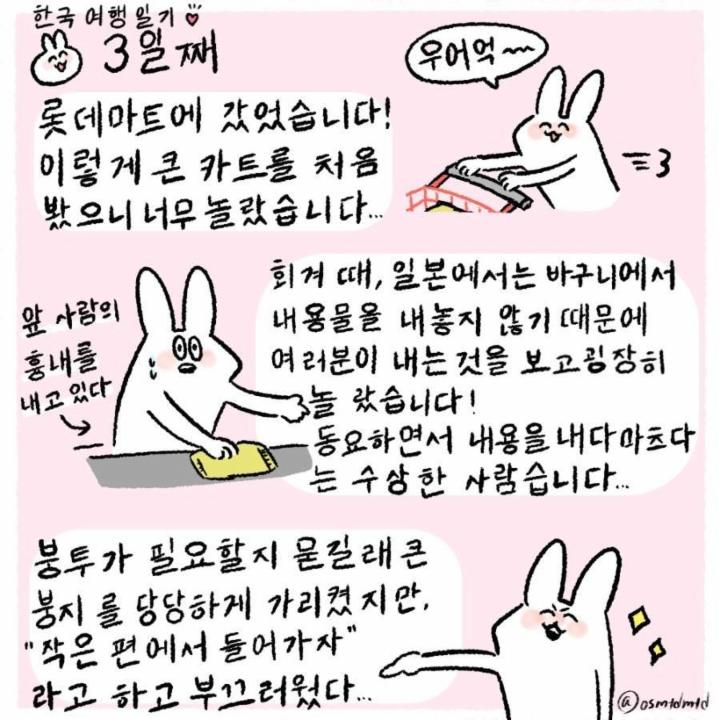 한국 여행 일기
3일째
우어억~~
롯데마트에 갔었습니다!
이렇게 큰 카트를 처음
봤으니 너무 놀랐습니다...
회겨 때, 일본에서는 바구니에서
내용물을 내놓지 않기 때문에
여러분이 내는 것을 보고 굉장히
놀랐습니다!
동요하면서 내용을 내다 마츠다
는 수상한 사람습니다...
앞 사람의
흉내를
내고 있다
붕투가 필요할지 묻길래 큰
붕지를 당당하게 가리켰지만,
"작은 편에서 들어가자"
라고 하고 부끄러웠다...
@osmtdmtd